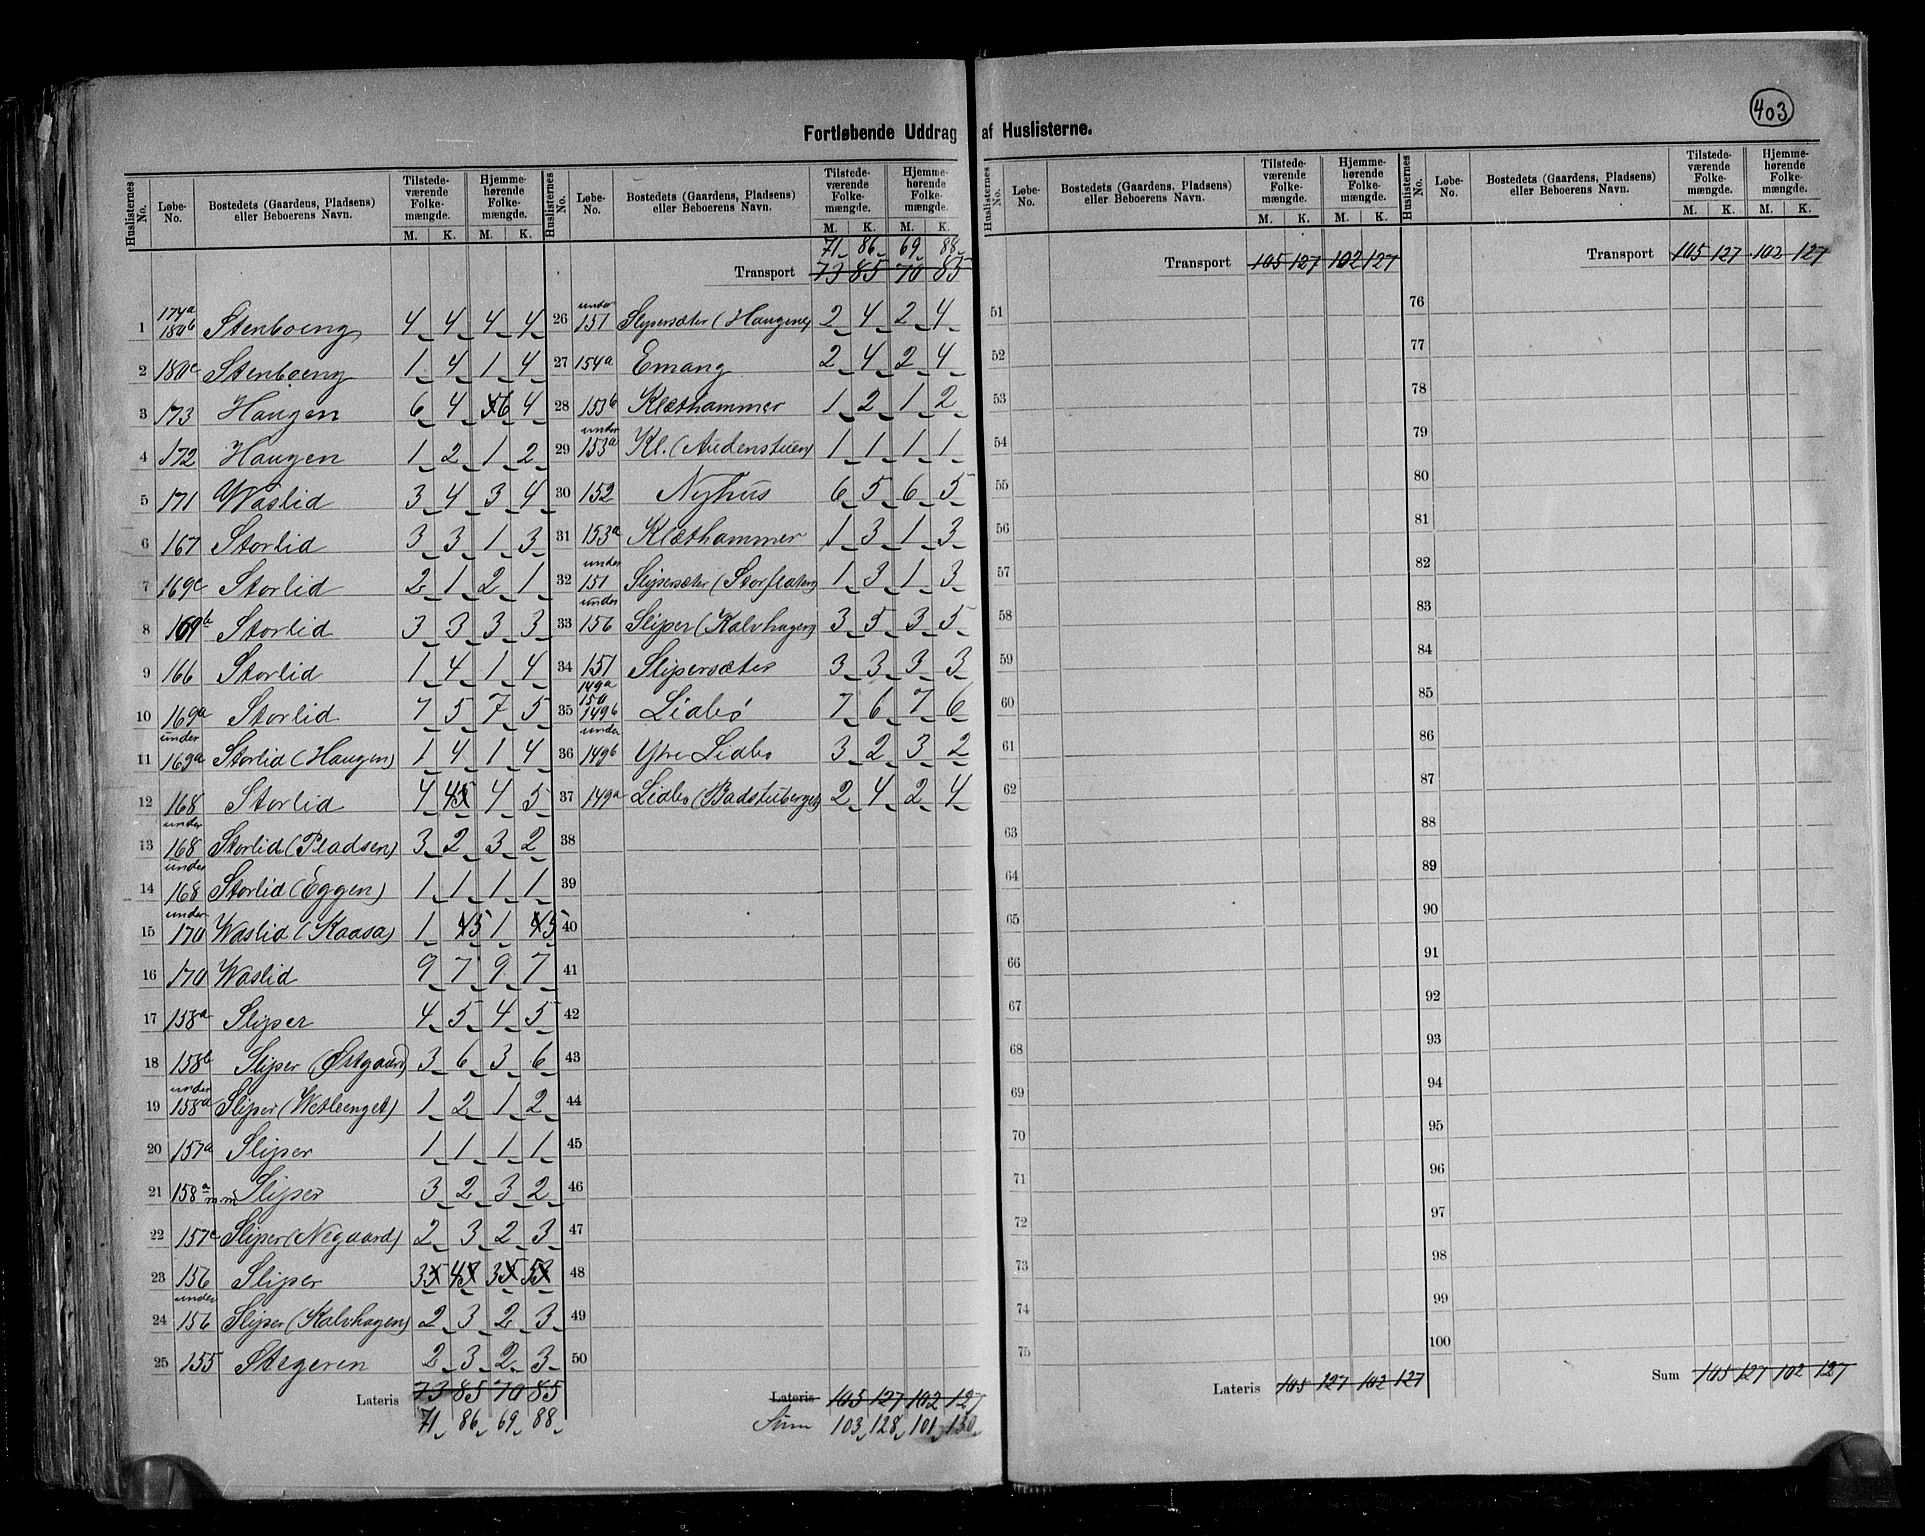 403
Fortløbende Uddrag af Huslisterne.
Huslisternes No. | Løbe-No. | Bostedets (Gaardens, Pladsens) eller Beboerens Navn. | Tilstedeværende Folkemængde. M. K. | Hjemmehørende Folkemængde. M. K.
1 | 174a 180b | Stenboeng | 4 4 4 4
2 | 180c | Stenboeng | 1 4 1 4
3 | 173 | Haugen | 6 4 6 4
4 | 172 | Haugen | 1 2 1 2
5 | 171 | Waslid | 3 4 3 4
6 | 167 | Storlid | 3 3 1 3
7 | 169c | Storlid | 2 1 2 1
8 | 169b | Storlid | 3 3 3 3
9 | 166 | Storlid | 1 4 1 4
10 | 169a | Storlid | 7 5 7 5
11 | under 169a | Storlid (Haugen) | 1 4 1 4
12 | 168 | Storlid | 4 4 4 5
13 | under 168 | Storlid (Pladsen) | 3 2 3 2
14 | under 168 | Storlid (Eggen) | 1 1 1 1
15 | under 170 | Waslid (Kaasa) | 1 5 1 5
16 | 170 | Waslid | 9 7 9 7
17 | 158a | Slijper | 4 5 4 5
18 | 158b | Slijper (Østgaard) | 3 6 3 6
19 | under 158a | Slijper (Wetleenget) | 1 2 1 2
20 | 157a | Slijper | 1 1 1 1
21 | 158a m m | Slijper | 3 2 3 2
22 | 157c | Slijper (Negaard) | 2 3 2 3
23 | 156 | Slijper | 3 4 3 5
24 | under 156 | Slijper (Kalvhagen) | 2 3 2 3
25 | 155 | Stegeren | 2 3 2 3
Lateris 73 85 70 85
71 86 69 88
Huslisternes No. | Løbe-No. | Bostedets (Gaardens, Pladsens) eller Beboerens Navn. | Tilstedeværende Folkemængde. M. K. | Hjemmehørende Folkemængde. M. K.
71 86 69 88
Transport 73 85 70 85
26 | under 151 | Slijpersæter (Haugene) | 2 4 2 4
27 | 154a | Emang | 2 4 2 4
28 | 153b | Klæthammer | 1 2 1 2
29 | under 153a | Kl. (Audenstuen) | 1 1 1 1
30 | 152 | Nyhus | 6 5 6 5
31 | 153a | Klæthammer | 1 3 1 3
32 | under 151 | Slijpersæter (Storflaten) | 1 3 1 3
33 | under 156 | Slijper (Kalvhagen) | 3 5 3 5
34 | 151 | Slijpersæter | 3 3 3 3
35 | 149a 150 149b | Lidbø | 7 6 7 6
36 | under 149b | Ytre Lidbø | 3 2 3 2
37 | 149a | Lidbø (Badstuberget) | 2 4 2 4
38
39
40
41
42
43
44
45
46
47
48
49
50
Lateris 105 127 102 127
Sum 103 128 101 130
Huslisternes No. | Løbe-No. | Bostedets (Gaardens, Pladsens) eller Beboerens Navn. | Tilstedeværende Folkemængde. M. K. | Hjemmehørende Folkemængde. M. K.
Transport 105 127 102 127
51
52
53
54
55
56
57
58
59
60
61
62
63
64
65
66
67
68
69
70
71
72
73
74
75
Lateris 105 127 102 127
Huslisternes No. | Løbe-No. | Bostedets (Gaardens, Pladsens) eller Beboerens Navn. | Tilstedeværende Folkemængde. M. K. | Hjemmehørende Folkemængde. M. K.
Transport 105 127 102 127
76
77
78
79
80
81
82
83
84
85
86
87
88
89
90
91
92
93
94
95
96
97
98
99
100
Sum 105 127 102 127